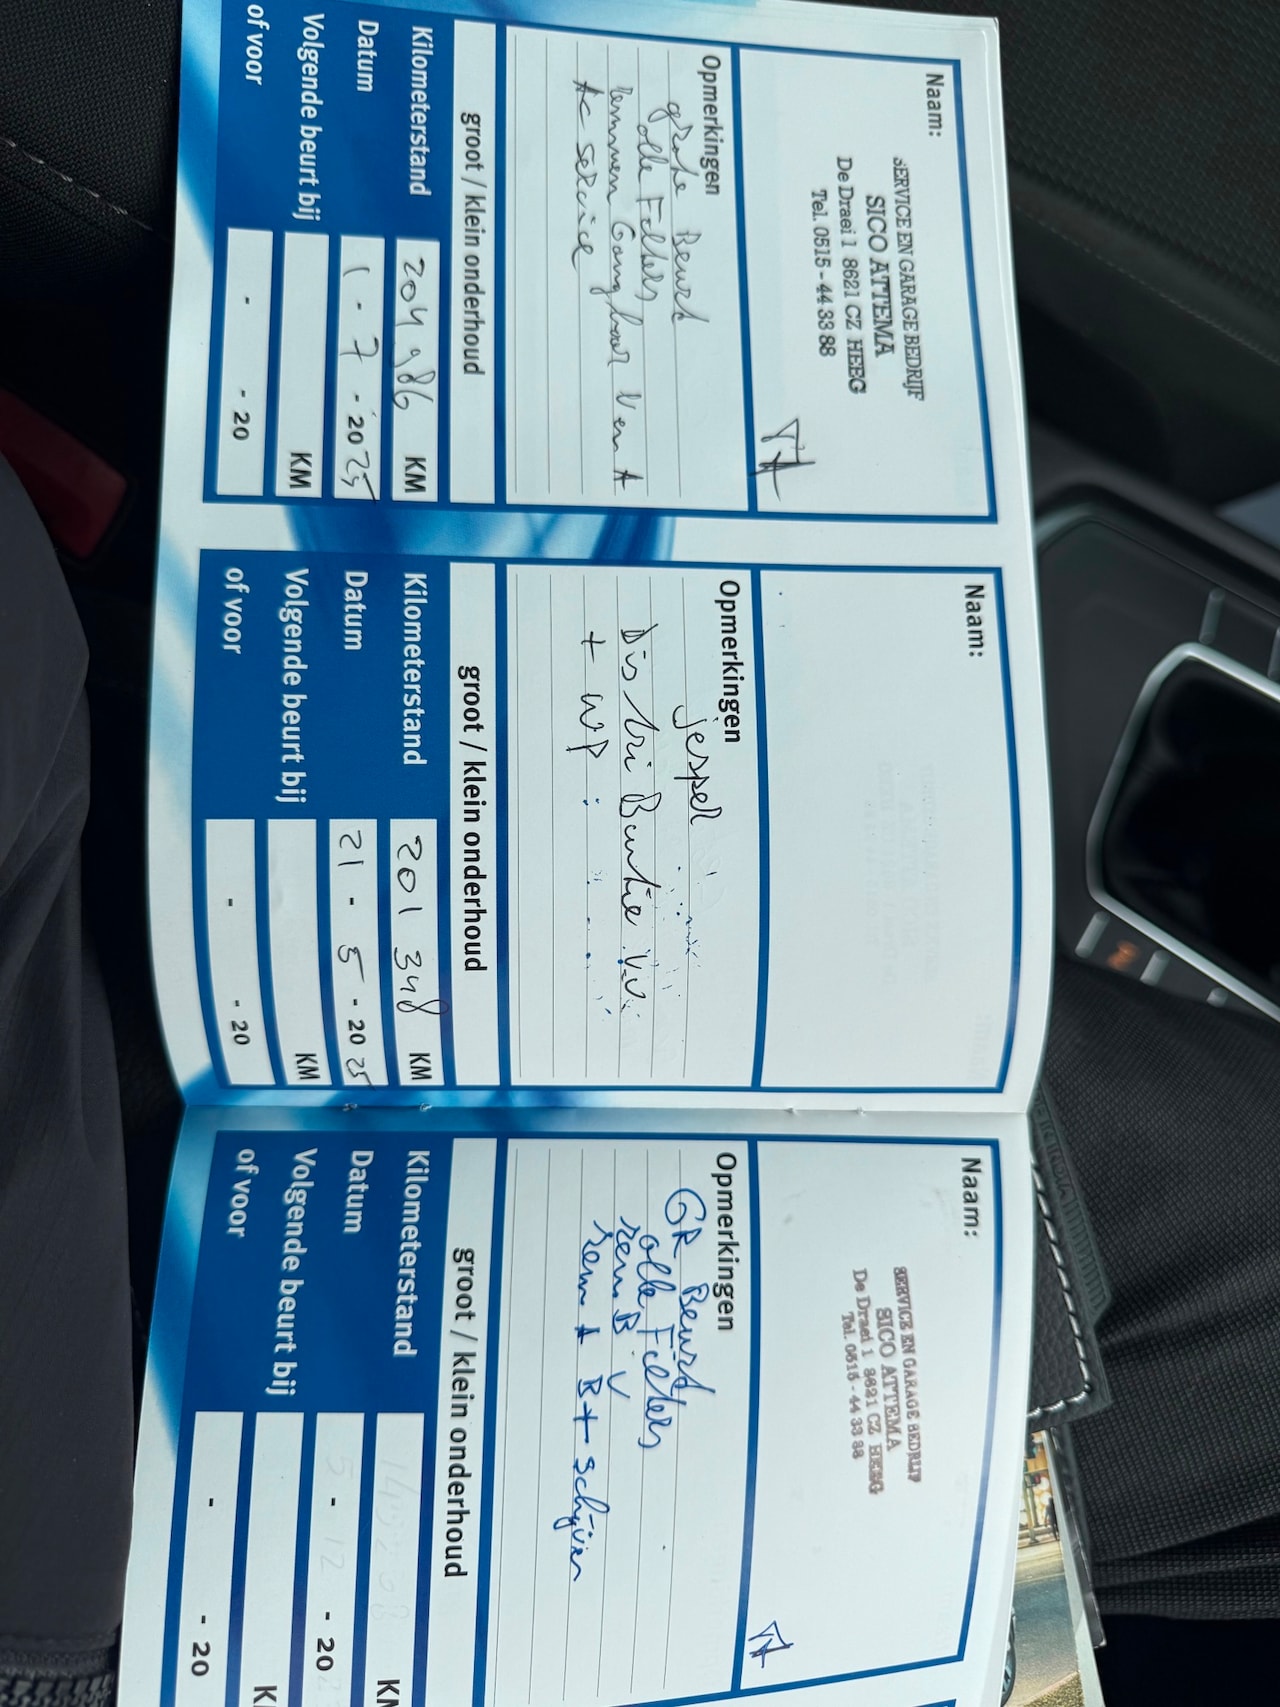 Naam:
SERVICE EN GARAGE BEDRIJF
SICO ATTEMA
De Draei 1 8621 CZ HEEG
Tel. 0515 - 44 33 88
Opmerkingen
grote Beurt
alle Filters
Remmen Gangbaar V en A
Ac service
groot / klein onderhoud
Kilometerstand 204986 KM
Datum 1 - 7 - 2025
Volgende beurt bij KM
of voor - - 20
Naam:
Opmerkingen
jesper
Distributie V.V.
+ WP
groot / klein onderhoud
Kilometerstand 201 348 KM
Datum 21 - 5 - 2025
Volgende beurt bij KM
of voor - - 20
Naam:
SERVICE EN GARAGE BEDRIJF
SICO ATTEMA
De Draei 1 8621 CZ HEEG
Tel. 0515 - 44 33 88
Opmerkingen
GR Beurt
alle Filters
rem B V
rem A B + Schijven
groot / klein onderhoud
Kilometerstand KM
Datum 5 - 12 - 20
Volgende beurt bij K
of voor - - 20